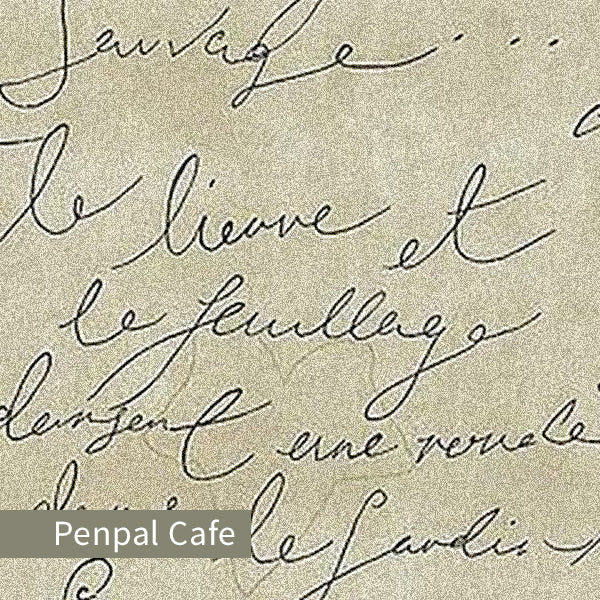 Sauvage. ...
le lierre et
le feuillage
dansent une ronde
dans le jardin
Penpal Cafe